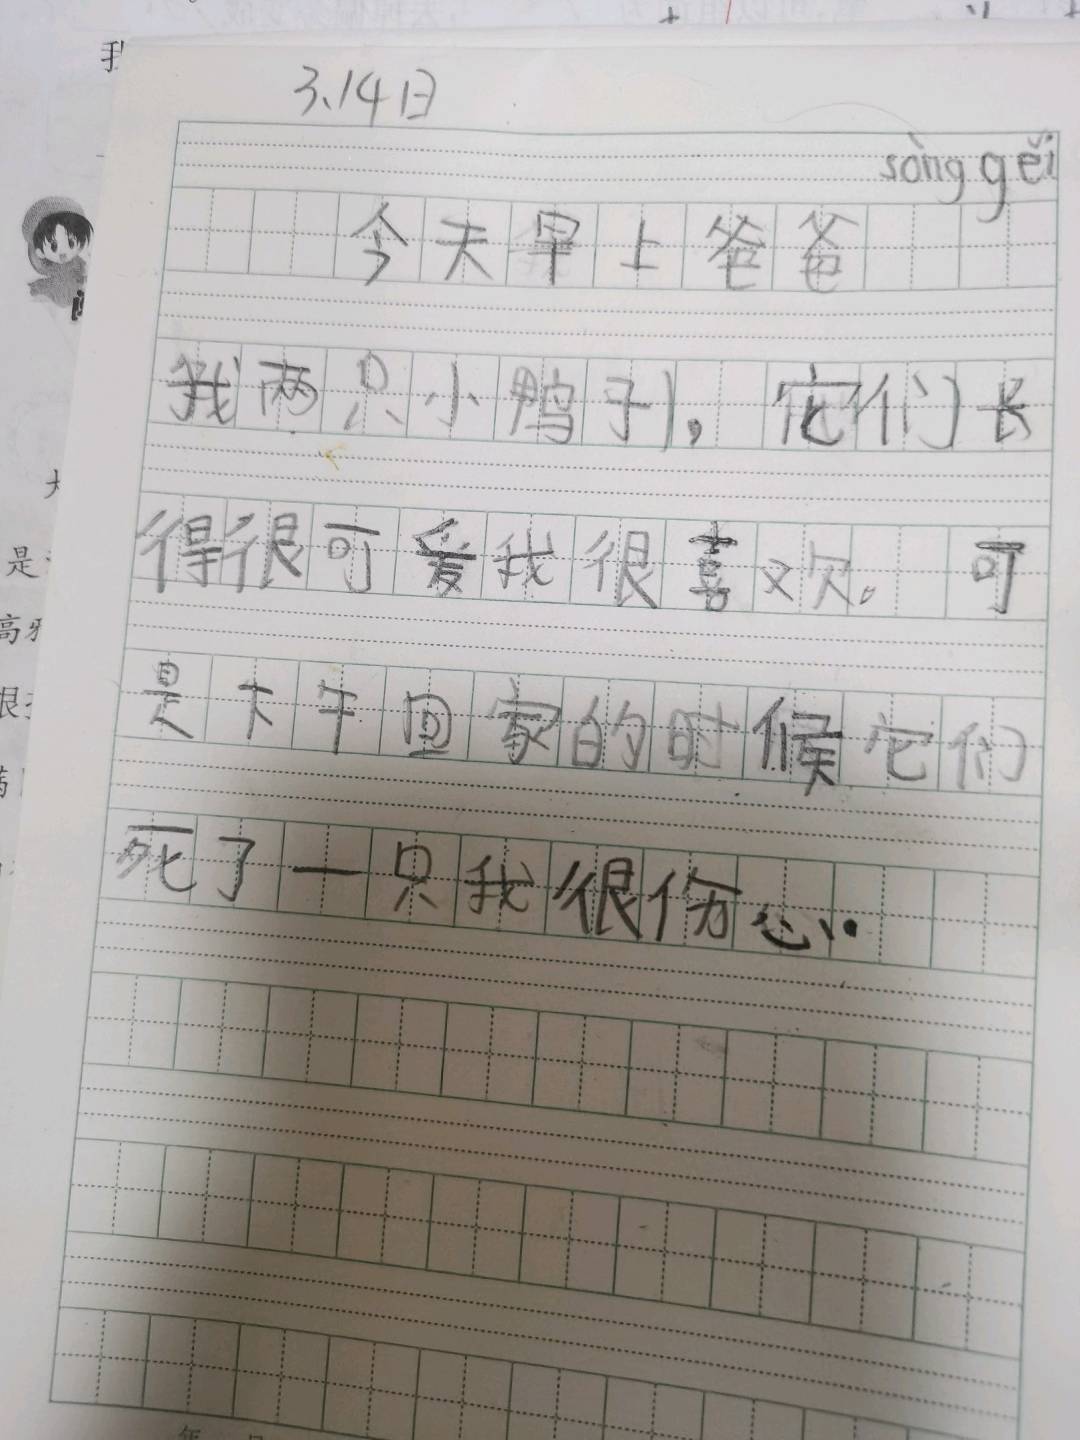 3.14日
sòng gěi
今天早上爸爸
我两只小鸭子,它们长
得很可爱我很喜欢。可
是下午回家的时候它们
死了一只我很伤心..
我
是
高
年 月